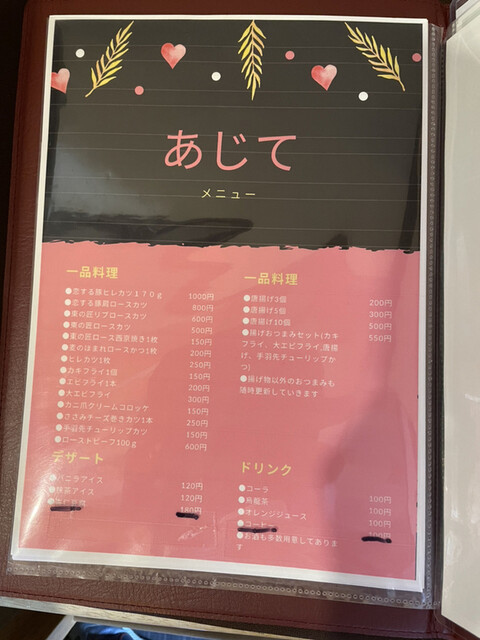 あじて
メニュー
一品料理
●恋する豚ヒレカツ１７０ｇ 1000円
●恋する豚肩ロースカツ 800円
●東の匠リブロースカツ 600円
●東の匠ロースカツ 500円
●東の匠ロース西京焼き1枚 150円
●麦のほまれロースかつ1枚 200円
●ヒレカツ1枚 250円
●カキフライ1個 150円
●エビフライ1本 200円
●大エビフライ 300円
●カニ爪クリームコロッケ 150円
●ささみチーズ巻きカツ1本 250円
●手羽先チューリップカツ 150円
●ローストビーフ100ｇ 600円
デザート
●バニラアイス 120円
●抹茶アイス 120円
180円
一品料理
●唐揚げ3個 200円
●唐揚げ5個 300円
●唐揚げ10個 500円
●揚げおつまみセット(カキ 550円
フライ、大エビフライ,唐揚
げ、手羽先チューリップか
つ)
●揚げ物以外のおつまみも
随時更新していきます
ドリンク
●コーラ 100円
●烏龍茶 100円
●オレンジジュース
●コーヒー 100円
●お酒も多数用意してありま
す